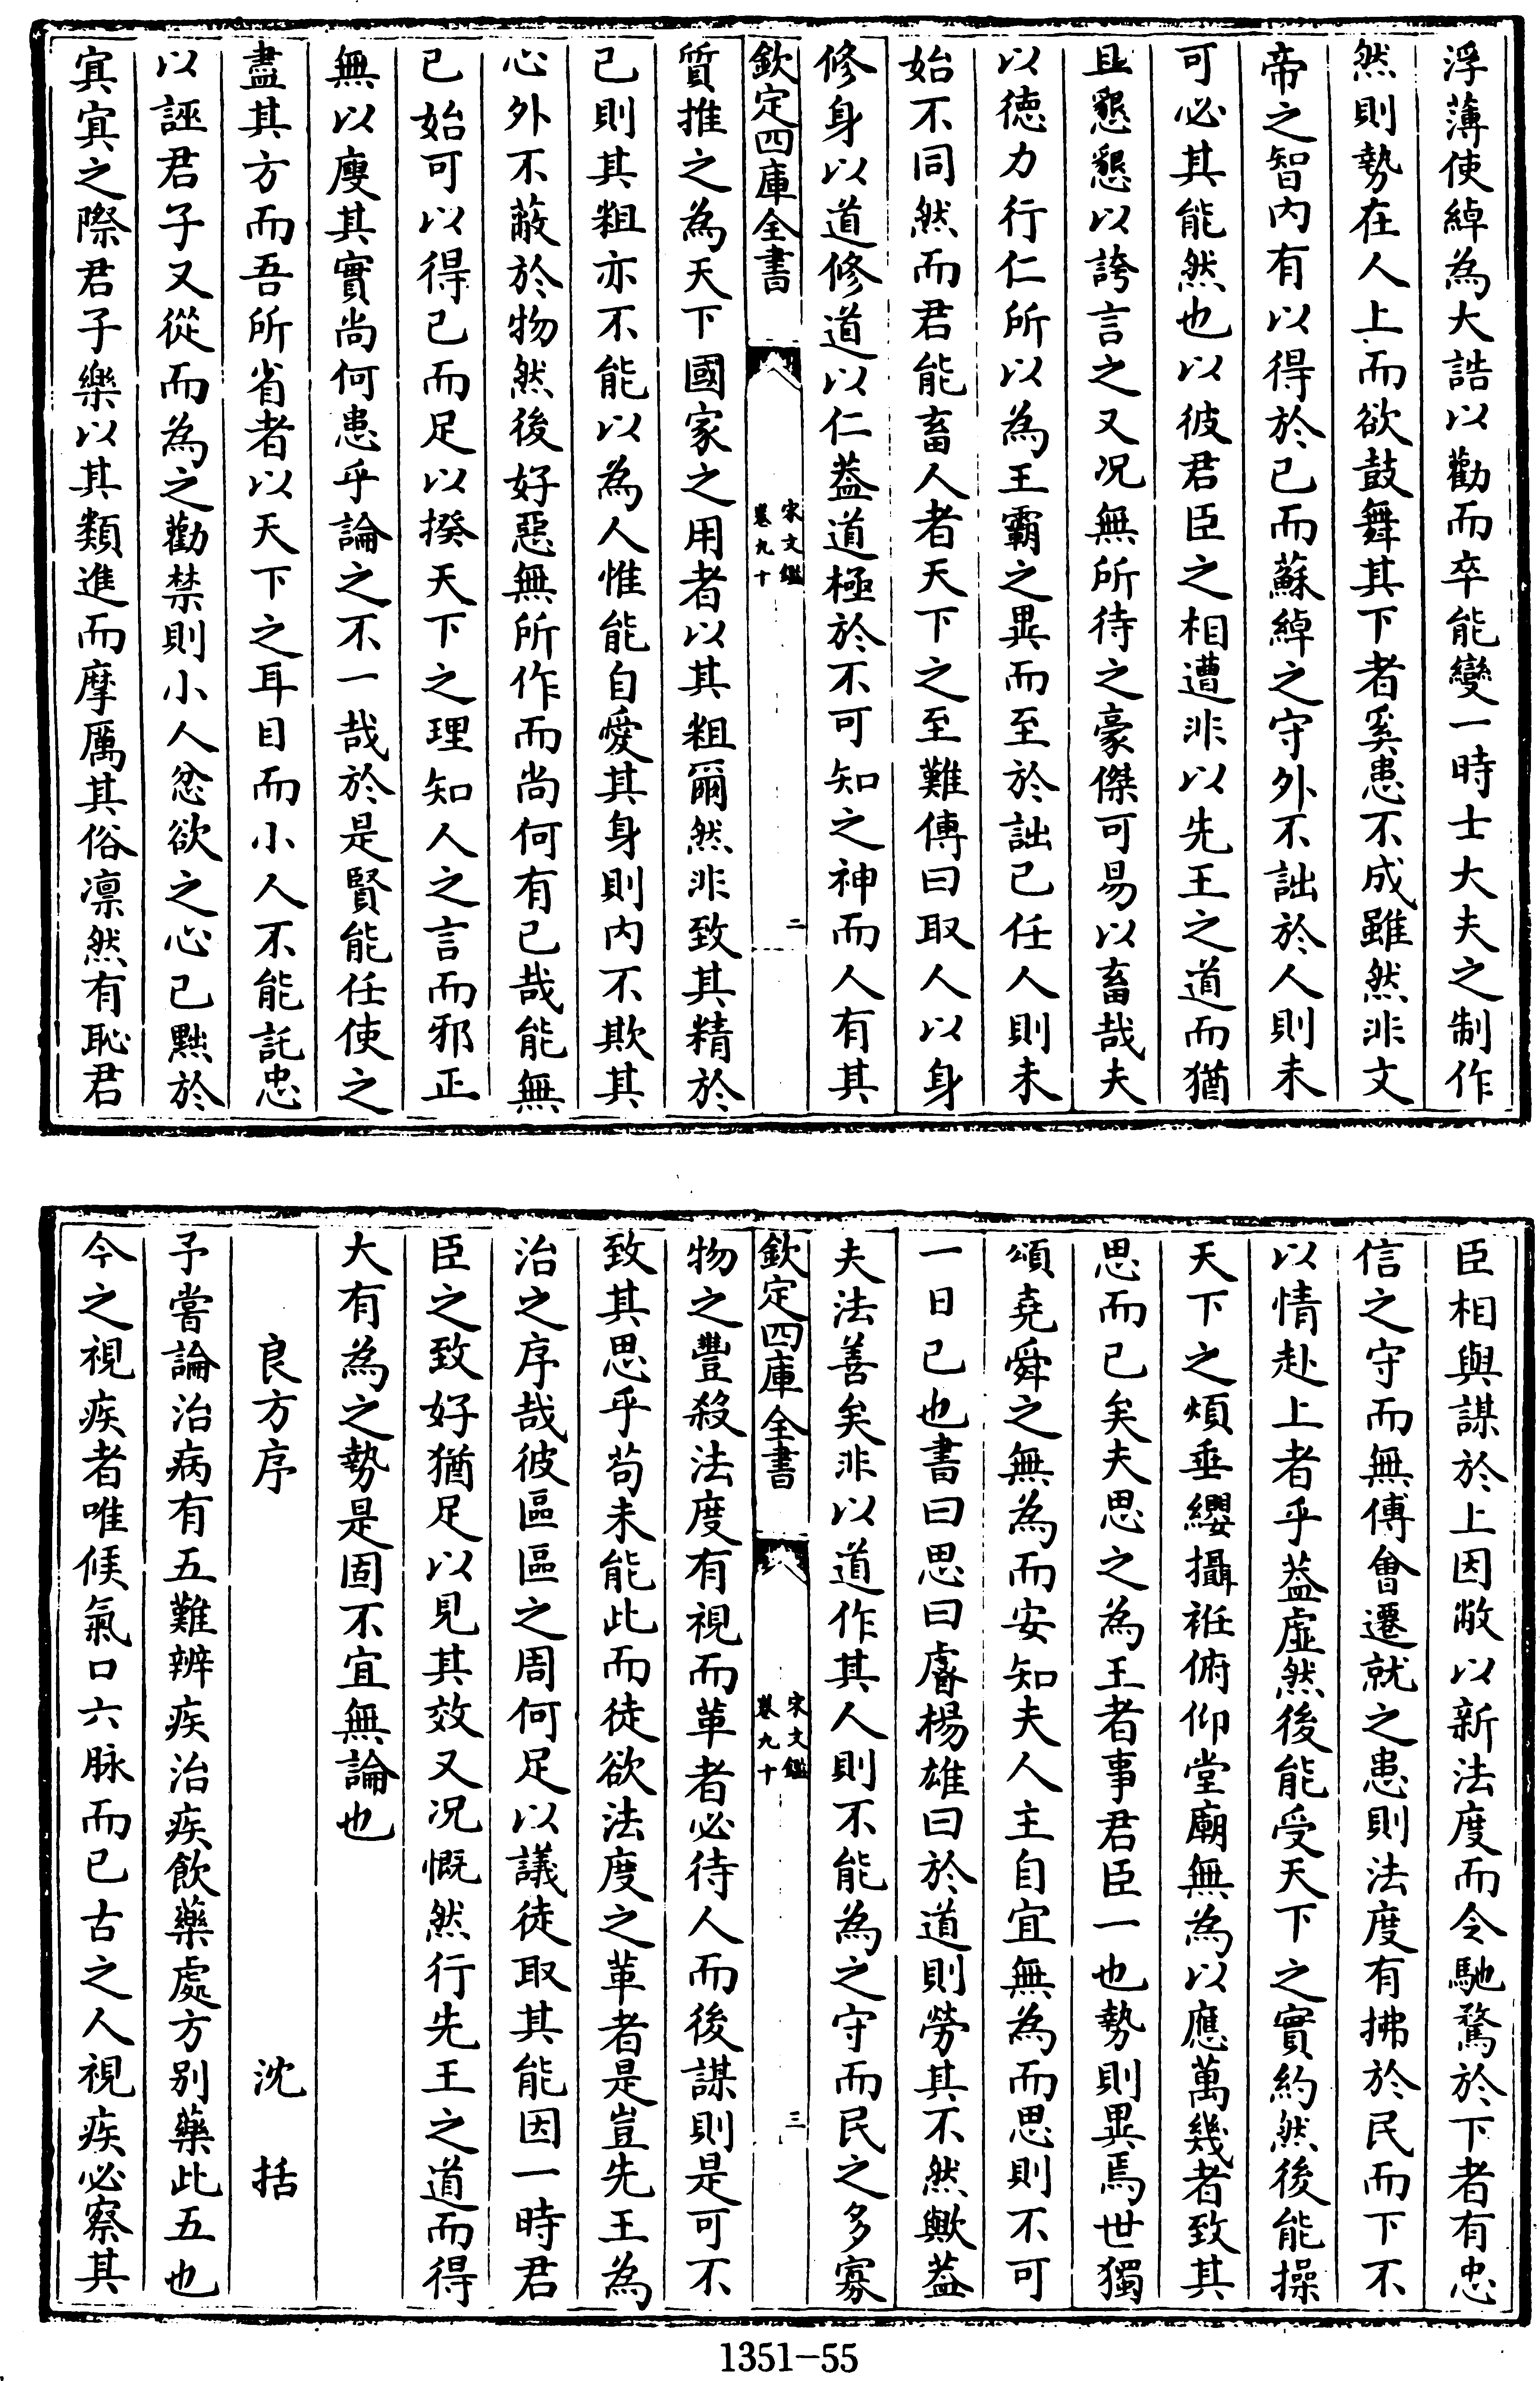 浮薄使綽為大誥以勸而卒能變一時士大夫之制作
然則勢在人上而欲鼓舞其下者奚患不成雖然非文
帝之智内有以得於己而蘇綽之守外不詘於人則未
可必其能然也以彼君臣之相遭非以先王之道而猶
且懇懇以誇言之又況無所待之豪傑可易以畜哉夫
以徳力行仁所以為王霸之異而至於詘己任人則未
始不同然而君能畜人者天下之至難傳曰取人以身
修身以道修道以仁葢道極於不可知之神而人有其
欽定四庫全書
宋文鑑
卷九十
二
質推之為天下國家之用者以其粗爾然非致其精於
己則其粗亦不能以為人惟能自愛其身則内不欺其
心外不蔽於物然後好惡無所作而尚何有己哉能無
已始可以得己而足以揆天下之理知人之言而邪正
無以廋其實尚何患乎論之不一哉於是賢能任使之
盡其方而吾所省者以天下之耳目而小人不能託忠
以誣君子又從而為之勸禁則小人忿欲之心已黙於
㝠㝠之際君子樂以其類進而摩厲其俗凛然有恥君
臣相與謀於上因敝以新法度而令馳騖於下者有忠
信之守而無傅會遷就之患則法度有拂於民而下不
以情赴上者乎葢虛然後能受天下之實約然後能操
天下之煩垂纓攝袵俯仰堂廟無為以應萬幾者致其
思而已矣夫思之為王者事君臣一也勢則異焉世獨
頌堯舜之無為而安知夫人主自宜無為而思則不可
一日已也書曰思曰睿楊雄曰於道則勞其不然歟葢
夫法善矣非以道作其人則不能為之守而民之多寡
欽定四庫全書
宋文鑑
卷九十
三
物之豐殺法度有視而革者必待人而後謀則是可不
致其思乎茍未能此而徒欲法度之革者是豈先王為
治之序哉彼區區之周何足以議徒取其能因一時君
臣之致好猶足以見其效又况慨然行先王之道而得
大有為之勢是固不宜無論也
良方序　沈括
予嘗論治病有五難辨疾治疾飲藥處方别藥此五也
今之視疾者唯候氣口六脉而已古之人視疾必察其
1351-55